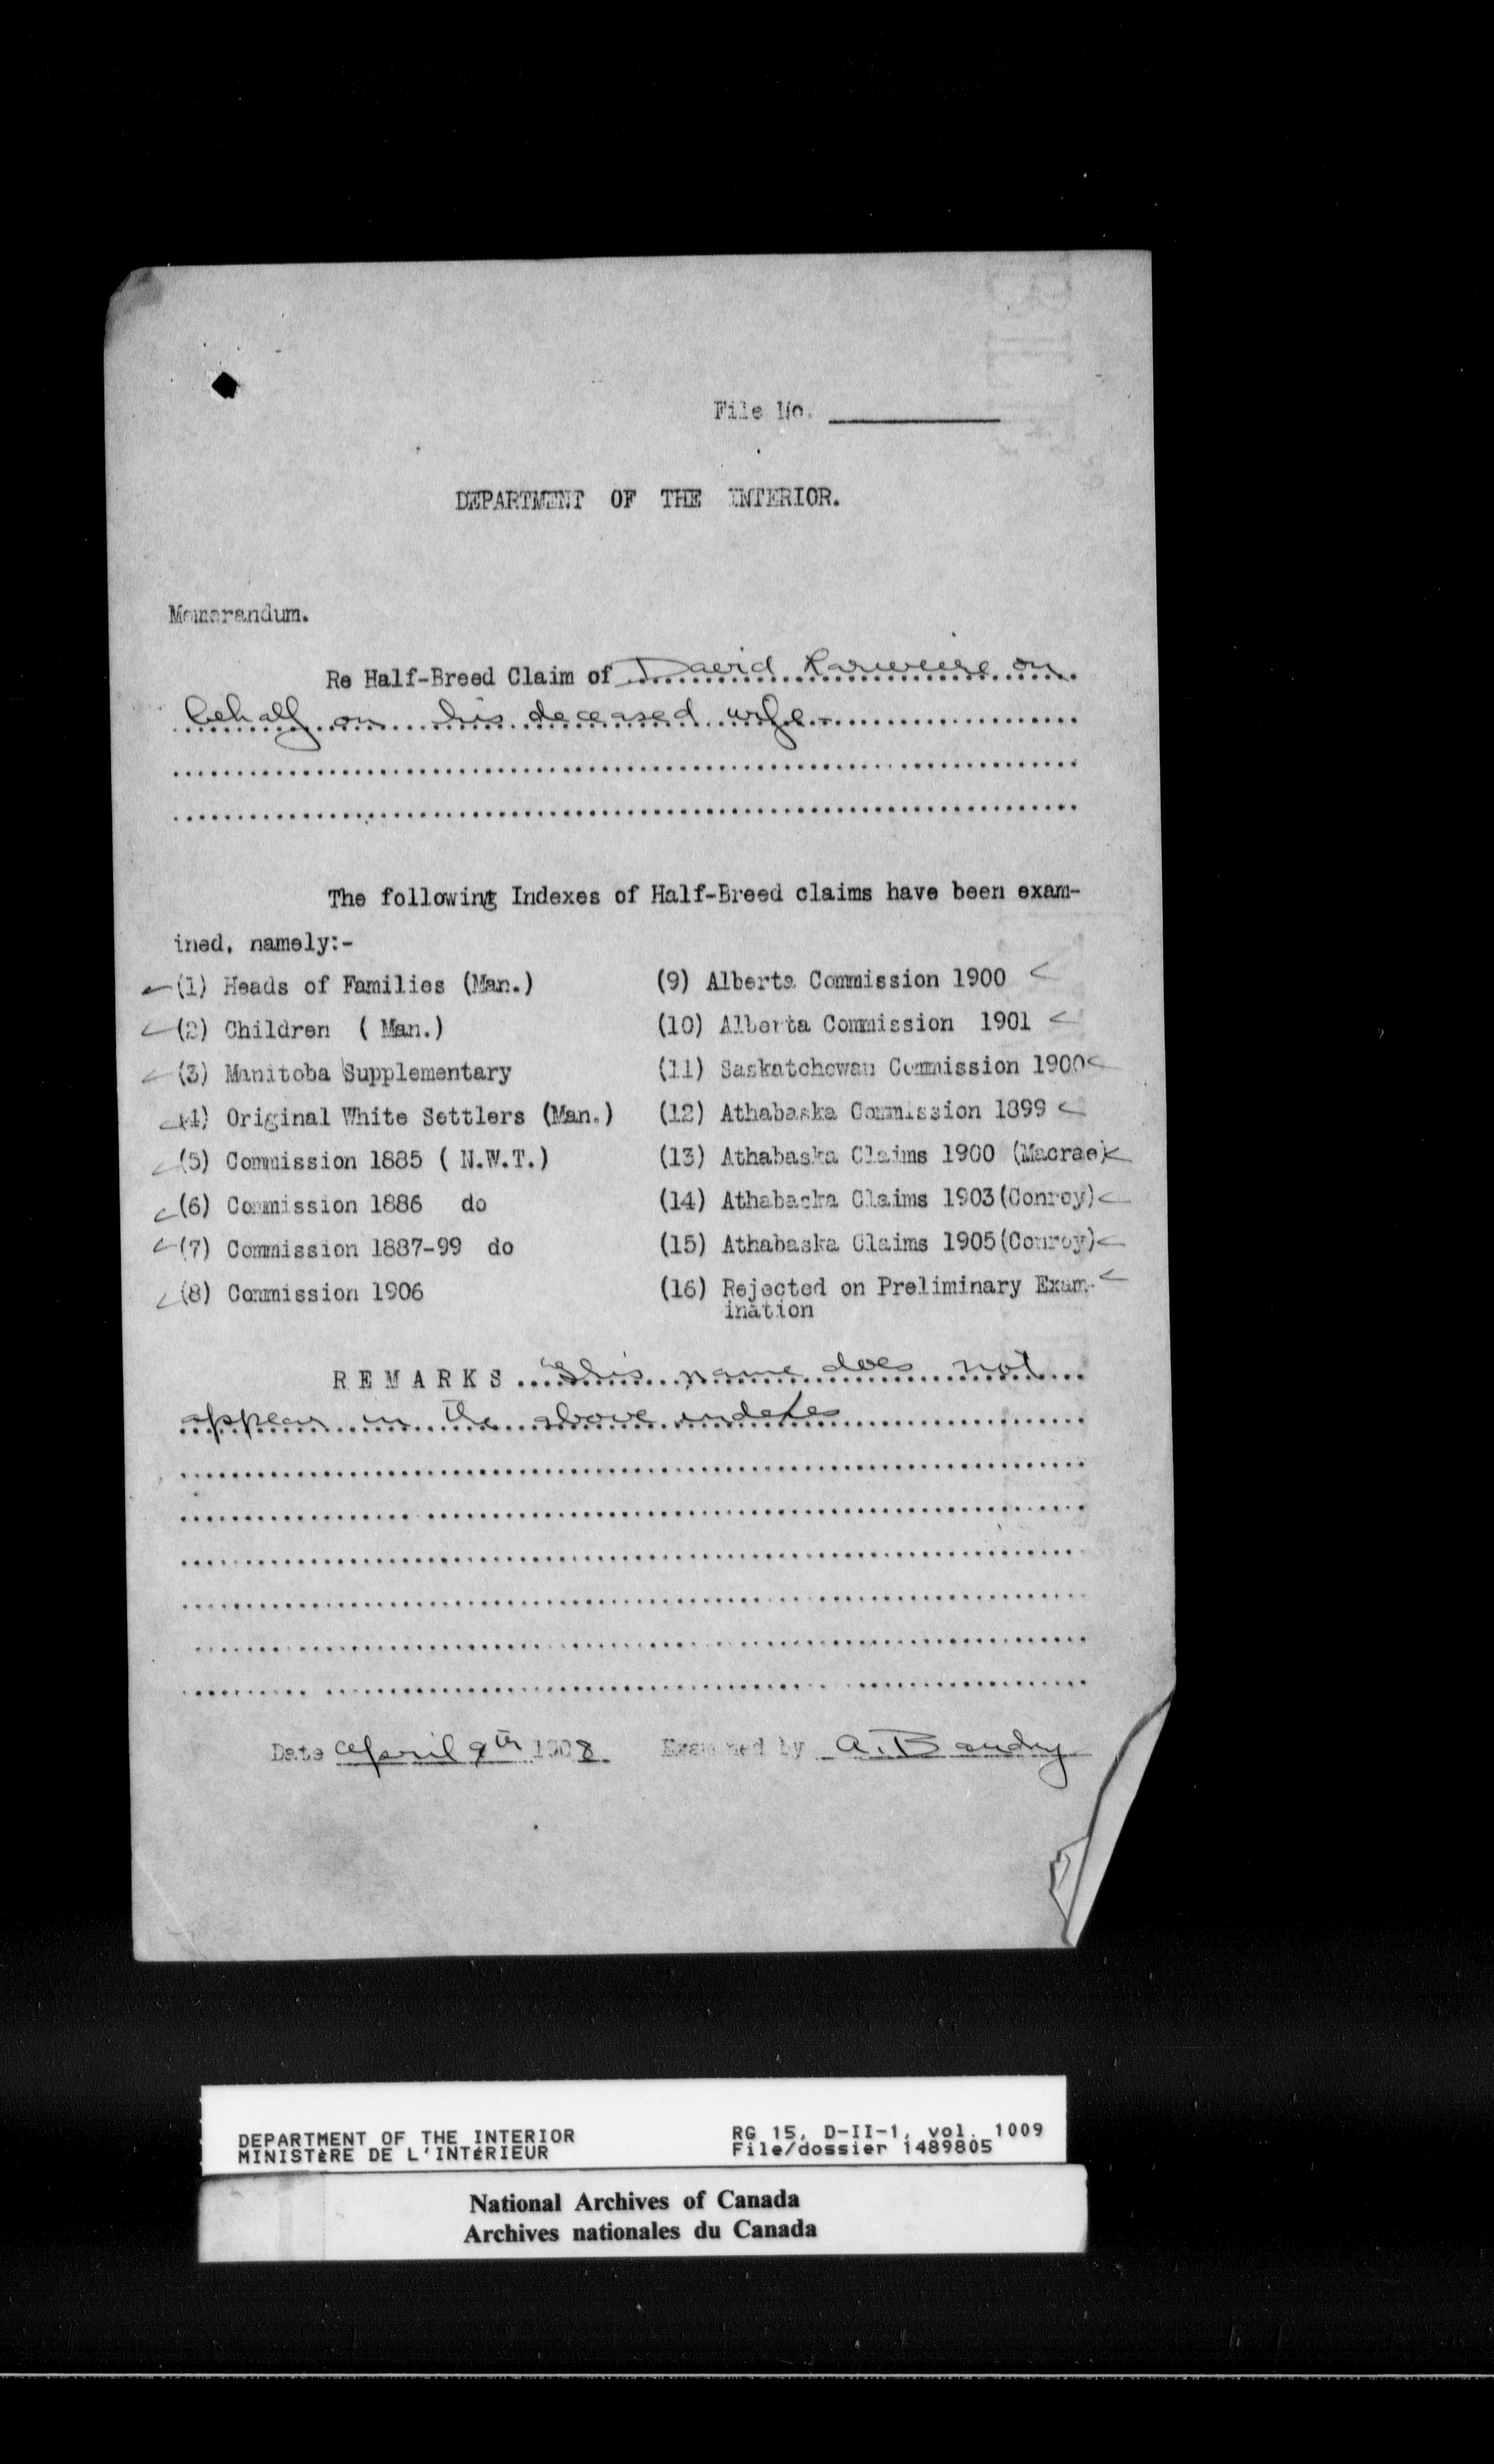 File No.
DEPARTMENT OF THE INTERIOR.
Memorandum.
Re Half-Breed Claim of David on
behalf on his deceased wife
The following Indexes of Half-Breed claims have been exam-
ined, namely:-
(1) Heads of Families (Man.)
(2) Children ( Man.)
(3) Manitoba Supplementary
(4) Original White Settlers (Man.)
(5) Commission 1885 ( N.W.T.)
(6) Commission 1886 do
(7) Commission 1887-99 do
(8) Commission 1906
(9) Alberta Commission 1900
(10) Alberta Commission 1901
(11) Saskatchewan Commission 1900
(12) Athabaska Commission 1899
(13) Athabaska Claims 1900 (Macrae)
(14) Athabaska Claims 1903(Conroy)
(15) Athabaska Claims 1905(Conroy)
(16) Rejected on Preliminary Exam-
ination
REMARKS This name does not
appear in the above indexes
Date April 9th 1908. Examined by A. Baudry
DEPARTMENT OF THE INTERIOR
MINISTÈRE DE L'INTÉRIEUR
RG 15, D-II-1, vol. 1009
File/dossier 1489805
National Archives of Canada
Archives nationales du Canada